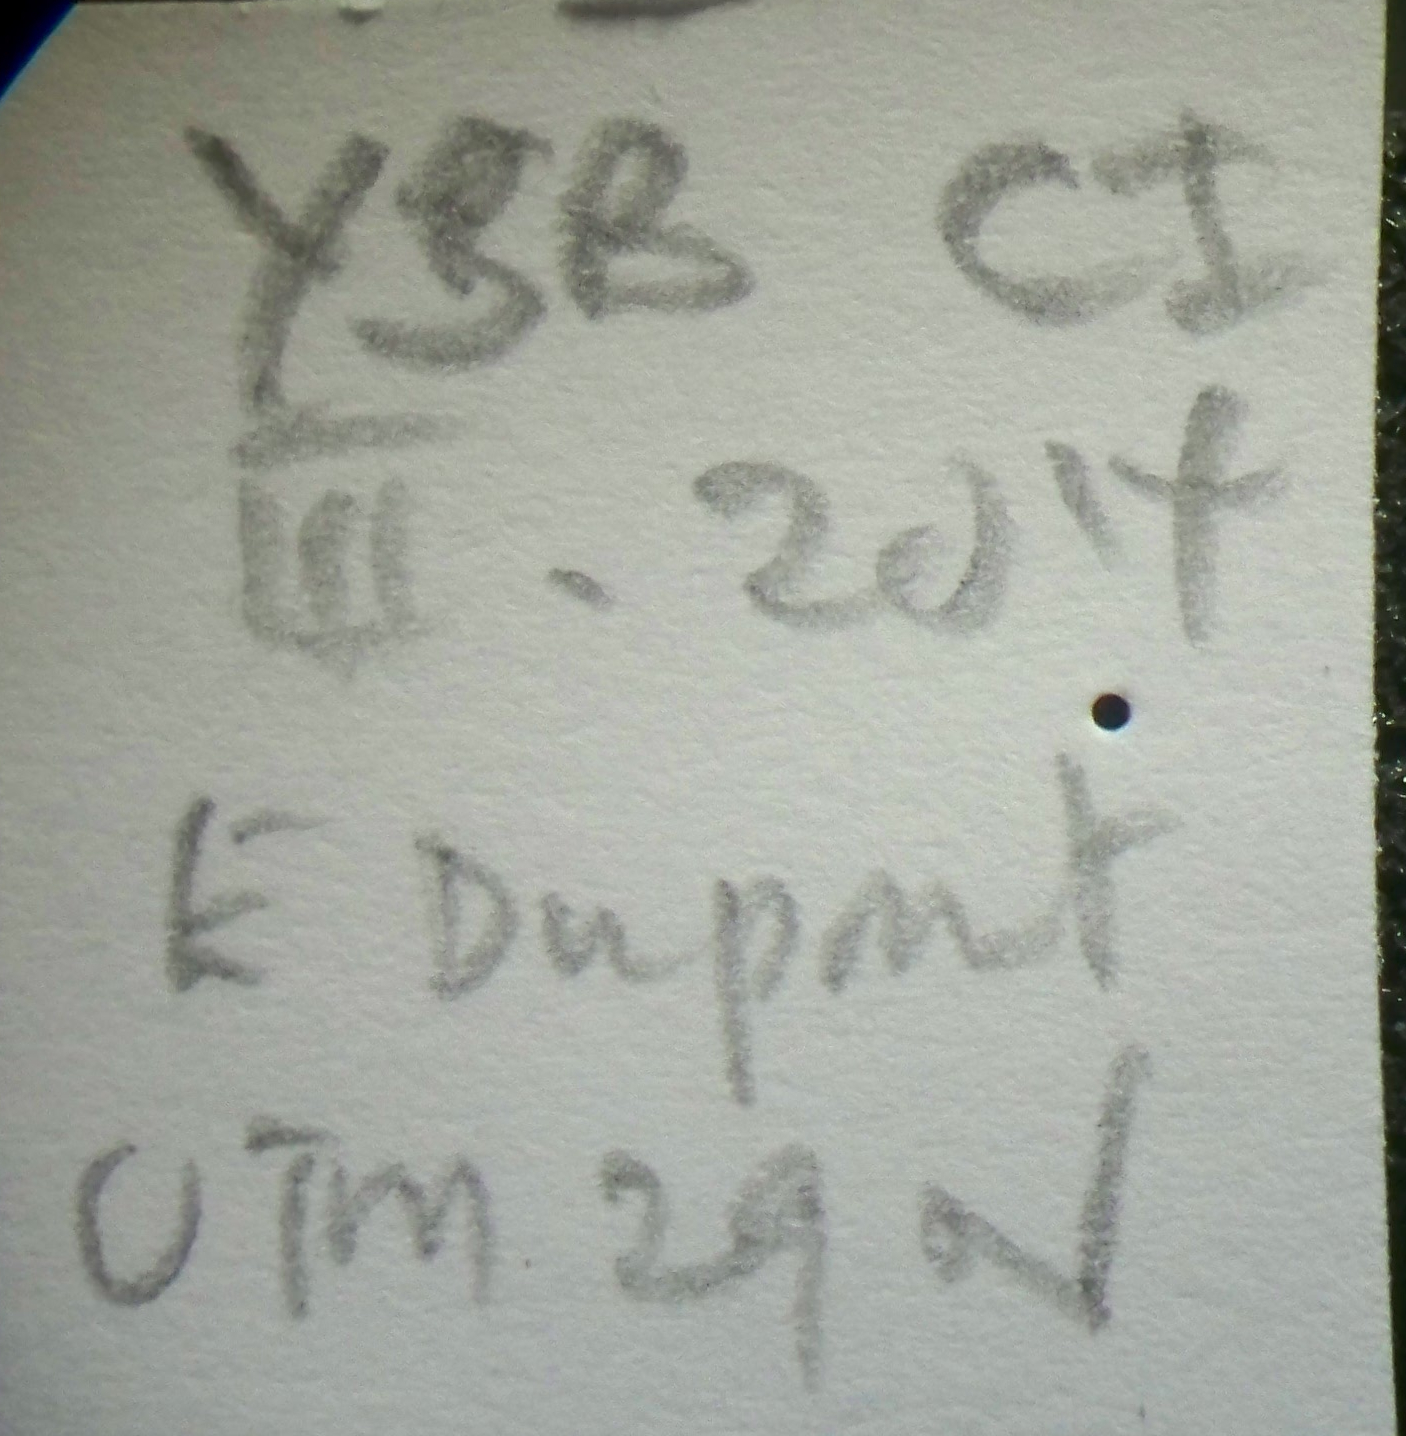 YSB CI
III . 2014
E Dupont
UTM 29 N